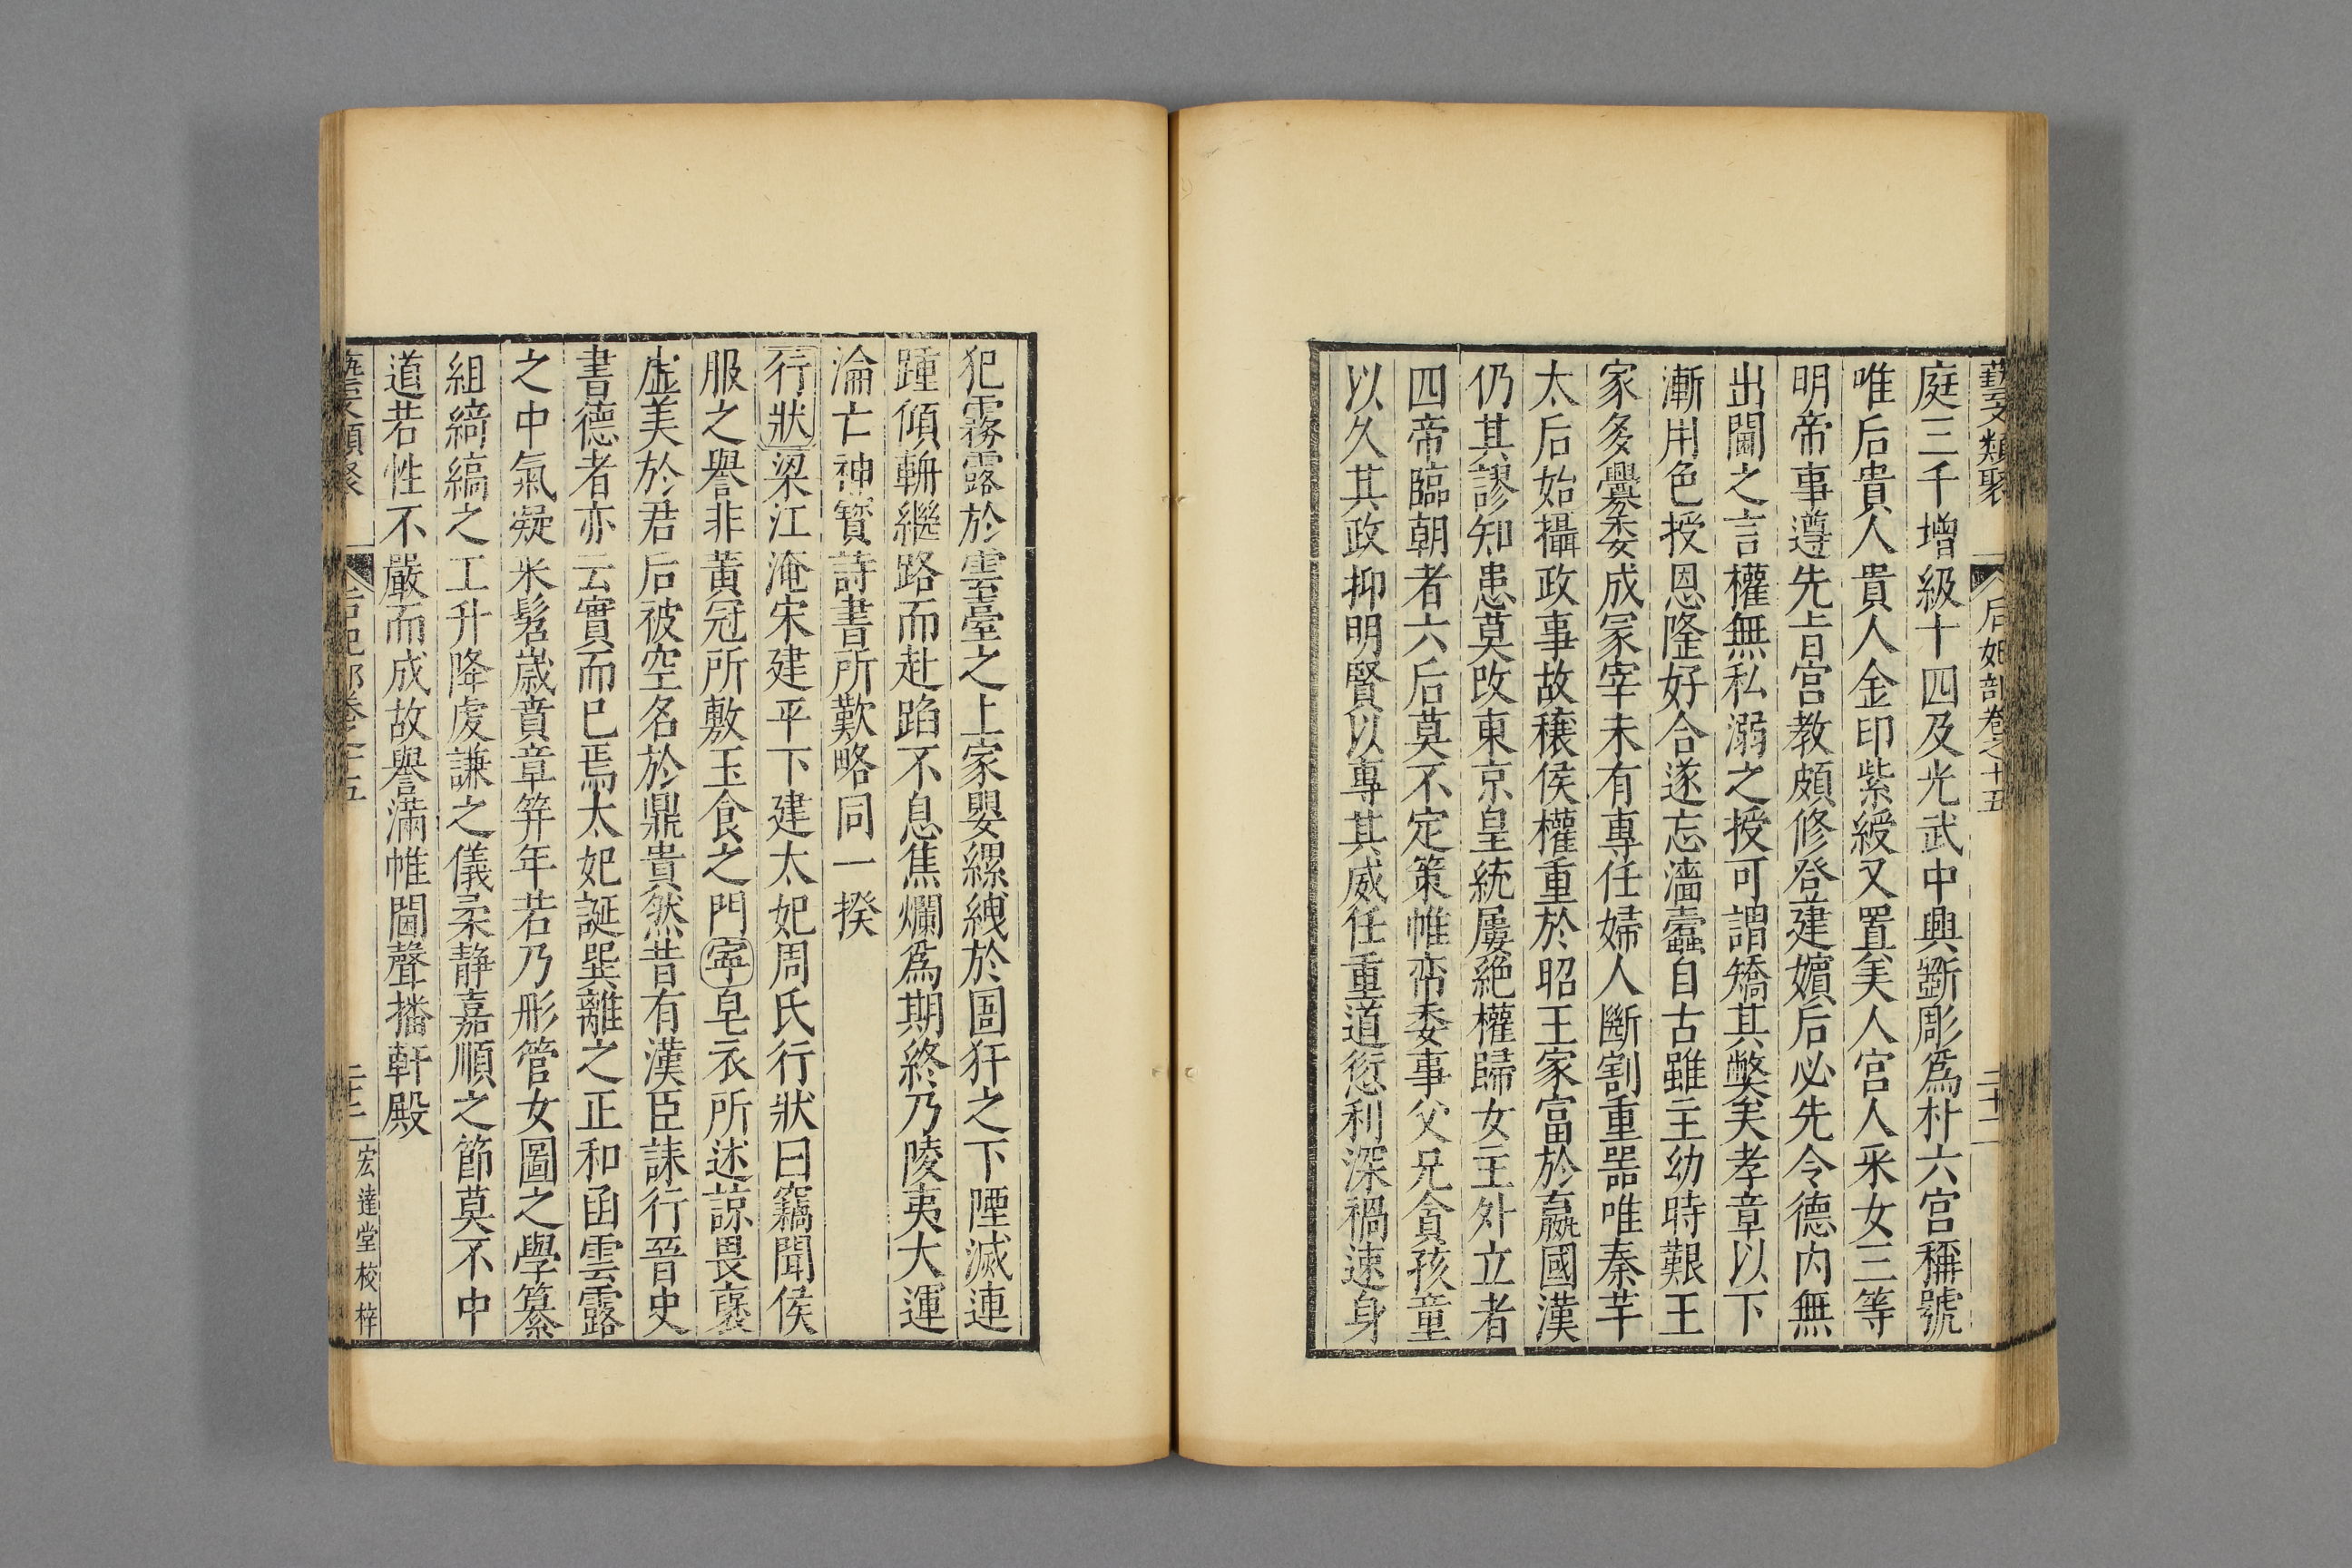 藝文類聚 后妃部卷之十五 二十二
庭三千增級十四及光武中興斲彫爲朴六宮稱號
唯后貴人貴人金印紫綬又置美人宮人采女三等
明帝事遵先旨宮教頗修登建嬪后必先令德內無
出閫之言權無私溺之授可謂矯其獘矣孝章以下
漸用色授恩隆好合遂忘淄蠹自古雖主幼時艱王
家多釁委成冢宰未有專任婦人斷割重噐唯秦芊
太后始攝政事故穰侯權重於昭王家富於嬴國漢
仍其謬知患莫改東京皇統屢絕權歸女主外立者
四帝臨朝者六后莫不定策帷帟委事父兄貪孩童
以久其政抑明賢以專其威任重道悠利深禍速身
犯霧露於雲臺之上家嬰縲紲於圄犴之下陻滅連
踵傾輈繼路而赴蹈不息焦爛爲期終乃陵夷大運
淪亡神寳詩書所歎略同一揆
行狀梁江淹宋建平下建太妃周氏行狀曰竊聞侯
服之譽非黃冠所敷玉食之門寧皂衣所述諒畏襃
虛美於君后被空名於鼎貴然昔有漢臣誄行晉史
書德者亦云實而已焉太妃誕巽離之正和函雲露
之中氣凝采髫歲賁章笄年若乃彤管女圖之學纂
組綺縞之工升降處謙之儀柔靜嘉順之節莫不中
道若性不嚴而成故譽滿帷閫聲播軒殿
宏達堂校梓